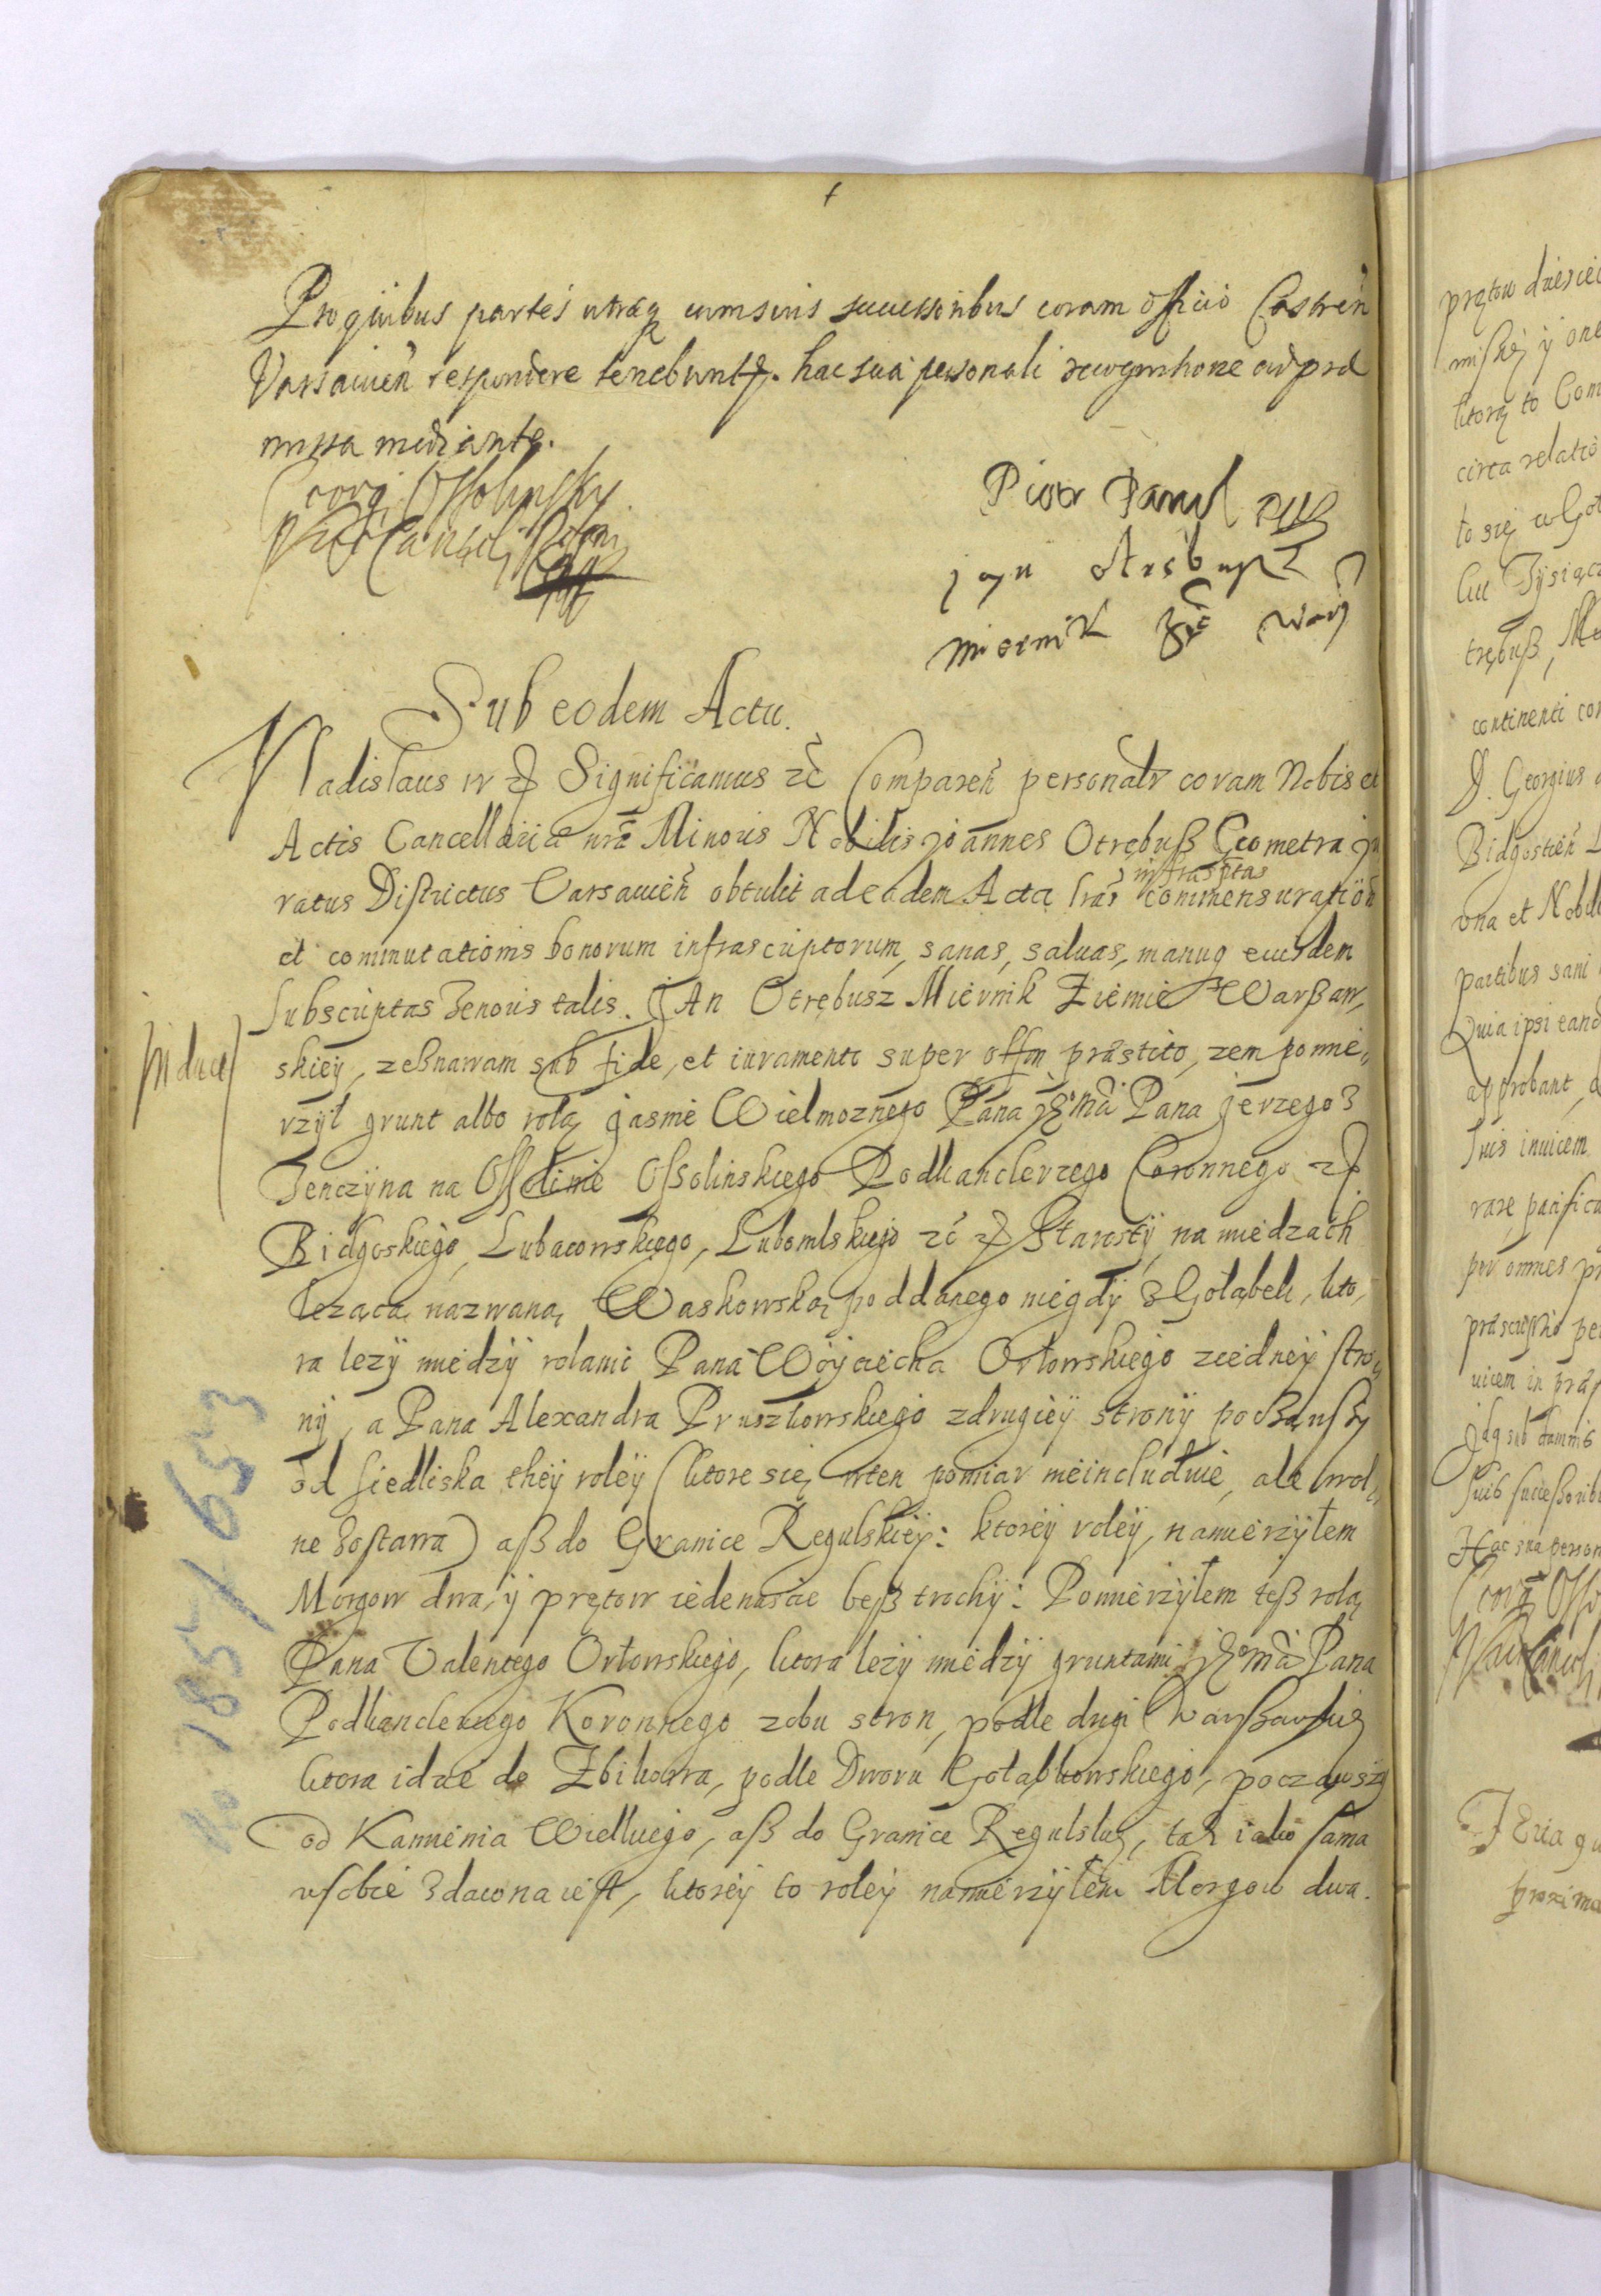 Pro quibus partes utraq cum suis successoribus coram officio Castren
Varsauien respondere tenebuntr. hac sua personali recognitione ad prae
missa mediante.
Georg Ossolinsky
Vice Cancel. Regni
Piotr Paweł
jan otrębusz
miernik Zie Warß
Sub eodem Actu.
Vladislaus IV etc Significamus etc Comparen personalr coram Nobis et
Actis Cancellariae nrae Minoris Nobilis Joannes Otrębuß Geometra ju
infrascriptas
ratus Districtus Varsauien obtulit ad eadem Acta lras commensuration
et commutationis bonorum infrascriptorum, sanas, saluas, manuq eiusdem
Subscriptas Tenoris talis. JAn Otrębusz Miernik Ziemie Warßaw,
skiey, zeßnawam sub fide, et iuramento super offm praestito, zem pomie,,
rzył grunt albo rolą jasnie Wielmoznego Pana Pana jerzego z
Tenczyna na Ossolinie Ossolinskiego Podkanclerzego Coronnego etc
Bidgoskiego, Lubaczowskiego, Lubomlskiego etc etc Starosty, na miedzach
lezącą nazwaną Waskowską poddanego niegdy z Gołąbek, kto,
ra lezy miedzy rolami Pana Woyciecha Orłowskiego z iedney stro,,
ny, a Pana Alexandra Pruszkowskiego z drugiey strony począwßy
od siedliska they roley (ktore się w ten pomiar nieincluduie, ale wol,,
ne zostawa) aß do Granice Regulskiey: ktorey roley, namierzyłem
Morgow dwa, y prętow iedenascie beß trochy: Pomierzyłem teß rolą
Pana Valentego Orłowskiego, ktora lezy miedzy gruntami Pana
Podkanclerzego Koronnego z obu stron, podle drogi Warßawskiey
ktora idzie do Zbikowa, podle Dworu Gołąbkowskiego, począwszy
od Kamienia Wielkiego, aß do Granice Regulskiey, tak iako sama
w sobie z dawna iest, ktorey to roley namierzyłem Morgow dwa.
Induc
No 185/653
prętow dziesięc
miskiey y one
ktorą to Com
circa relatio
to się w Goł
kie Tysiącz
trębuß, Mi
continenti cor
D. Georgius
Bidgostien L
ona et Nobil
partibus sani
Quia ipsi eand
approbant,
Suis inuicem
rare, pacifica
per omnes pr
uicem in praes
Idq sub damnis
Suis successorib
Hac sua person
Georg Osso
Vice Cancel
proxima